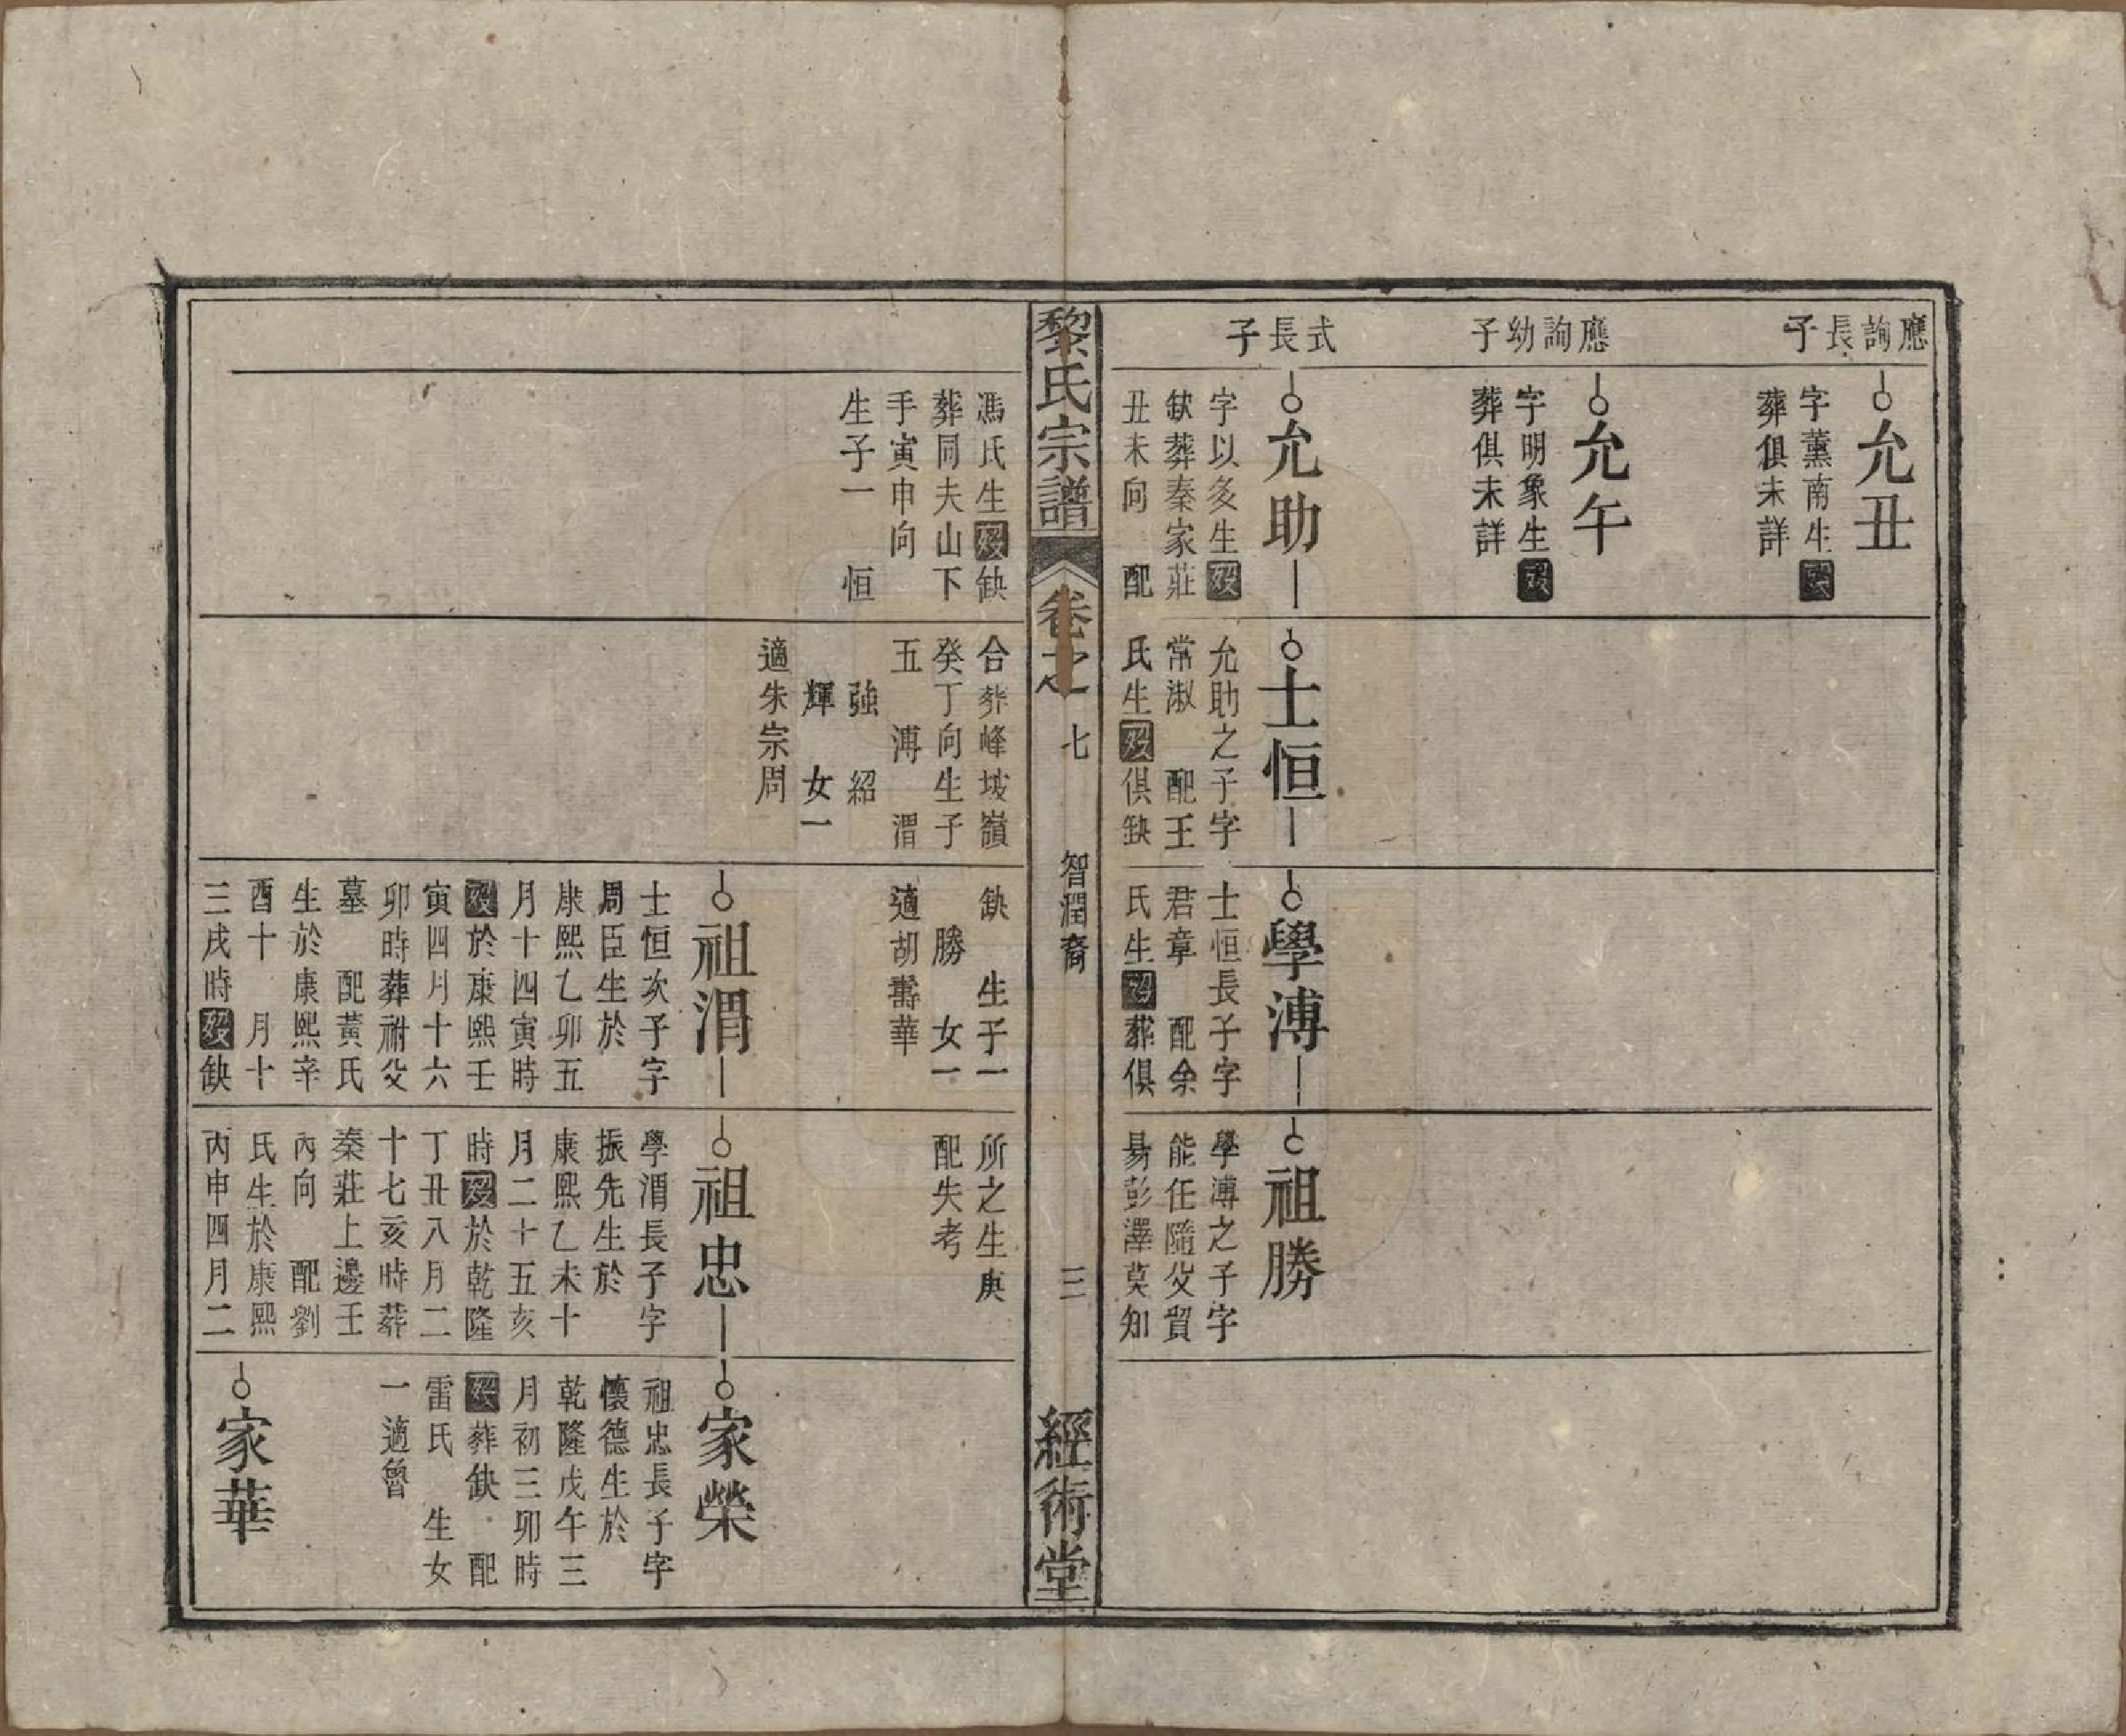 應詢長子
允丑
字薰南生歿
葬俱未詳
應詢幼子
允午
字明象生歿
葬俱未詳
式長子
允助
字以炙生歿
缺葬秦家莊
丑未向 配
士恒
允助之子字
常淑 配王
氏生歿俱缺
學溥
士恒長子字
君章 配余
氏生歿葬俱
祖勝
學溥之子字
能任隨父貿
易彭澤莫知
黎氏宗譜
卷之 七
智潤裔
三
經術堂
馮氏生歿缺
葬同夫山下
手寅申向
生子一 恒
合葬峰坡嶺
癸丁向生子
五 溥 渭
強 紹
輝 女一
適朱宗周
缺 生子一
勝 女一
適胡壽華
祖渭
士恒次子字
周臣生於
康熙乙卯五
月十四寅時
歿於康熙壬
寅四月十六
卯時葬祔父
墓 配黃氏
生於康熙辛
酉十 月十
三戌時歿缺
所之生庚
配失考
祖忠
學渭長子字
振先生於
康熙乙未十
月二十五亥
時歿於乾隆
丁丑八月二
十七亥時葬
秦莊上邊壬
丙向 配劉
氏生於康熙
丙申四月二
家榮
祖忠長子字
懷德生於
乾隆戊午三
月初三卯時
歿葬缺 配
雷氏 生女
一適魯
家華